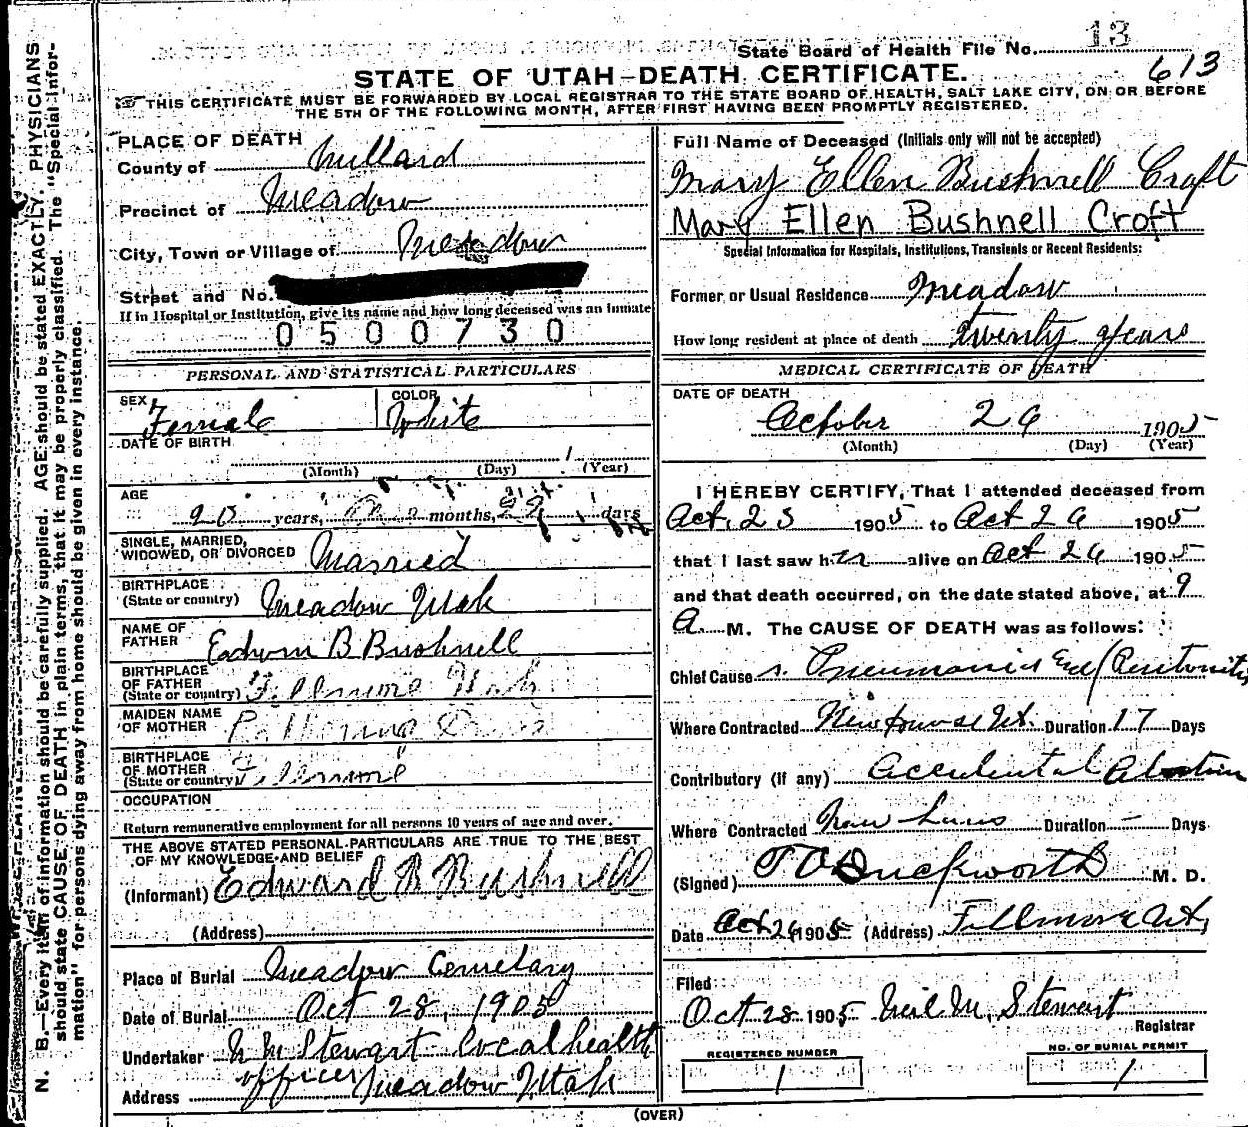 State Board of Health File No. 13
613
STATE OF UTAH—DEATH CERTIFICATE.
THIS CERTIFICATE MUST BE FORWARDED BY LOCAL REGISTRAR TO THE STATE BOARD OF HEALTH, SALT LAKE CITY, ON OR BEFORE
THE 5TH OF THE FOLLOWING MONTH, AFTER FIRST HAVING BEEN PROMPTLY REGISTERED.
N. B.—Every item of information should be carefully supplied. AGE should be stated EXACTLY. PHYSICIANS
should state CAUSE OF DEATH in plain terms, that it may be properly classified. The "Special Infor-
mation" for persons dying away from home should be given in every instance.
PLACE OF DEATH
County of Millard
Precinct of Meadow
City, Town or Village of Meadow
Street and No.
If in Hospital or Institution, give its name and how long deceased was an inmate
0500730
PERSONAL AND STATISTICAL PARTICULARS
SEX Female
COLOR White
DATE OF BIRTH
1
(Month) (Day) (Year)
AGE
20 years, months, days
SINGLE, MARRIED,
WIDOWED, OR DIVORCED Married
BIRTHPLACE
(State or country) Meadow Utah
NAME OF
FATHER Edwin B Bushnell
BIRTHPLACE
OF FATHER
(State or country) Fillmore Utah
MAIDEN NAME
OF MOTHER
BIRTHPLACE
OF MOTHER
(State or country) Fillmore
OCCUPATION
Return remunerative employment for all persons 10 years of age and over.
THE ABOVE STATED PERSONAL PARTICULARS ARE TRUE TO THE BEST
OF MY KNOWLEDGE AND BELIEF
(Informant) Edward B Bushnell
(Address)
Place of Burial Meadow Cemetary
Date of Burial Oct 28, 1905
Undertaker N M Stewart local health
officer
Address Meadow Utah
Full Name of Deceased (Initials only will not be accepted)
Mary Ellen Bushnell Croft
Mary Ellen Bushnell Croft
Special Information for Hospitals, Institutions, Transients or Recent Residents:
Former or Usual Residence Meadow
How long resident at place of death twenty years
MEDICAL CERTIFICATE OF DEATH
DATE OF DEATH
October 26 1905
(Month) (Day) (Year)
I HEREBY CERTIFY, That I attended deceased from
Oct. 23 1905 to Oct 26 1905
that I last saw her alive on Oct 26 1905
and that death occurred, on the date stated above, at 9
A. M. The CAUSE OF DEATH was as follows:
Chief Cause
Where Contracted Duration 17 Days
Contributory (if any) Accidental Abortion
Where Contracted Duration — Days
(Signed) T C Duckworth M. D.
Date Oct 26 1905 (Address) Fillmore Ut,
Filed
Oct 28 1905 Neil M. Stewart
Registrar
REGISTERED NUMBER
1
NO. OF BURIAL PERMIT
1
(OVER)